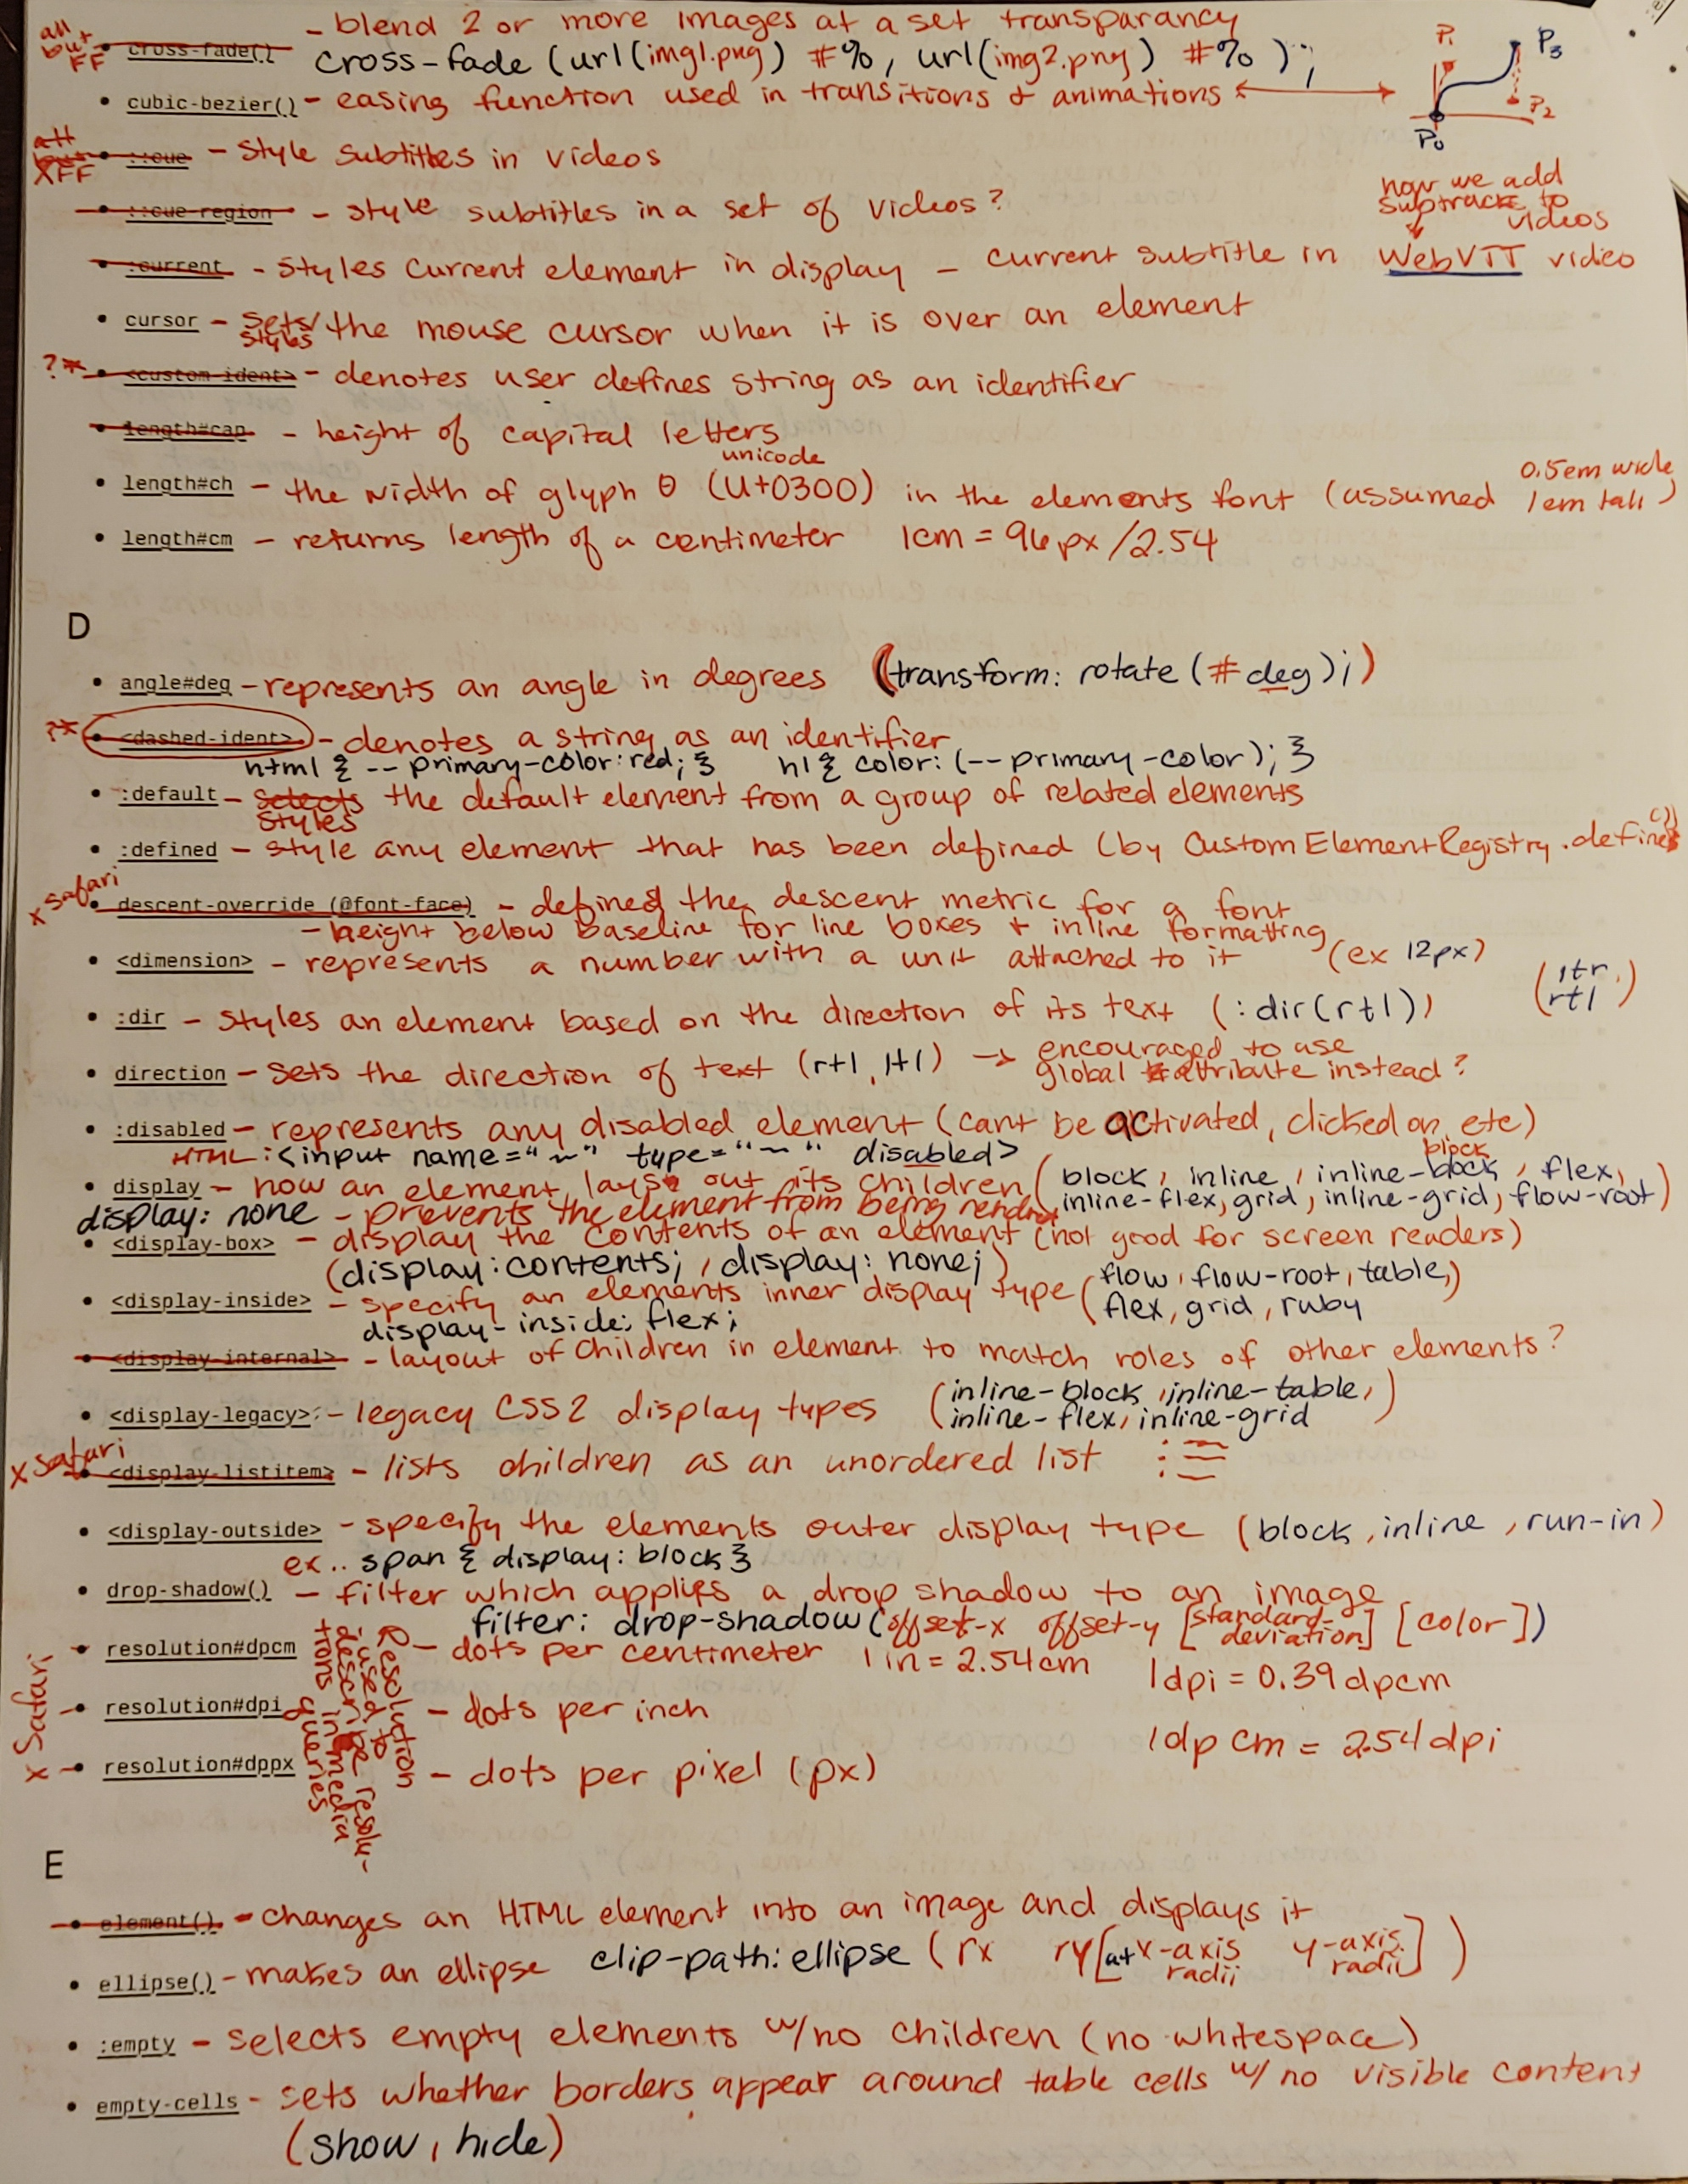 all
but
FF
- blend 2 or more images at a set transparancy
• cross-fade()
cross-fade (url(img1.png) #%, url(img2.png) #% );
P1 P3
P0 P2
• cubic-bezier() - easing function used in transitions & animations
all
but
XFF
• ::cue - style subtitles in videos
• ::cue-region - style subtitles in a set of videos?
how we add
subtracks to
videos
• :current - styles current element in display - current subtitle in WebVTT video
• cursor - sets/ the mouse cursor when it is over an element
styles
?* • <custom-ident> - denotes user defines string as an identifier
• length#cap - height of capital letters
unicode
• length#ch - the width of glyph 0 (U+0300) in the elements font (assumed 0.5em wide
1em tall)
• length#cm - returns length of a centimeter 1cm = 96px/2.54
D
• angle#deg - represents an angle in degrees (transform: rotate (# deg);)
?* • <dashed-ident> - denotes a string as an identifier
html { -- primary-color: red; } h1 { color: (--primary-color); }
• :default - selects the default element from a group of related elements
styles
• :defined - style any element that has been defined (by CustomElementRegistry.define())
x safari
• descent-override (@font-face) - defined the descent metric for a font
- height below baseline for line boxes & inline formatting
• <dimension> - represents a number with a unit attached to it (ex 12px)
• :dir - styles an element based on the direction of its text (:dir(rtl)) (ltr, rtl)
• direction - sets the direction of text (rtl, ltl) → encouraged to use
global attribute instead?
• :disabled - represents any disabled element (cant be activated, clicked on, etc)
HTML: <input name="~" type="~" disabled>
• display - how an element lays out its children (block, inline, inline-block, flex,
block
inline-flex, grid, inline-grid, flow-root)
display: none - prevents the element from being render
• <display-box> - display the contents of an element (not good for screen readers)
(display: contents; , display: none;)
• <display-inside> - specify an elements inner display type (flow, flow-root, table,
flex, grid, ruby)
display-inside: flex;
• <display-internal> - layout of children in element to match roles of other elements?
• <display-legacy> - legacy CSS2 display types (inline-block, inline-table,
inline-flex, inline-grid)
x safari
• <display-listitem> - lists children as an unordered list
• <display-outside> - specify the elements outer display type (block, inline, run-in)
ex.. span { display: block }
• drop-shadow() - filter which applies a drop shadow to an image
filter: drop-shadow(offset-x offset-y [standard-deviation] [color])
• resolution#dpcm - dots per centimeter 1 in = 2.54cm 1dpi = 0.39dpcm
x Safari
• resolution#dpi - dots per inch
1dpcm = 2.54dpi
x • resolution#dppx - dots per pixel (px)
Resolution
used to
describe resolu-
tions in media
queries
E
• element() - changes an HTML element into an image and displays it
• ellipse() - makes an ellipse clip-path: ellipse (rx ry [at x-axis radii y-axis radii])
• :empty - selects empty elements w/no children (no whitespace)
• empty-cells - sets whether borders appear around table cells w/ no visible content
(show, hide)